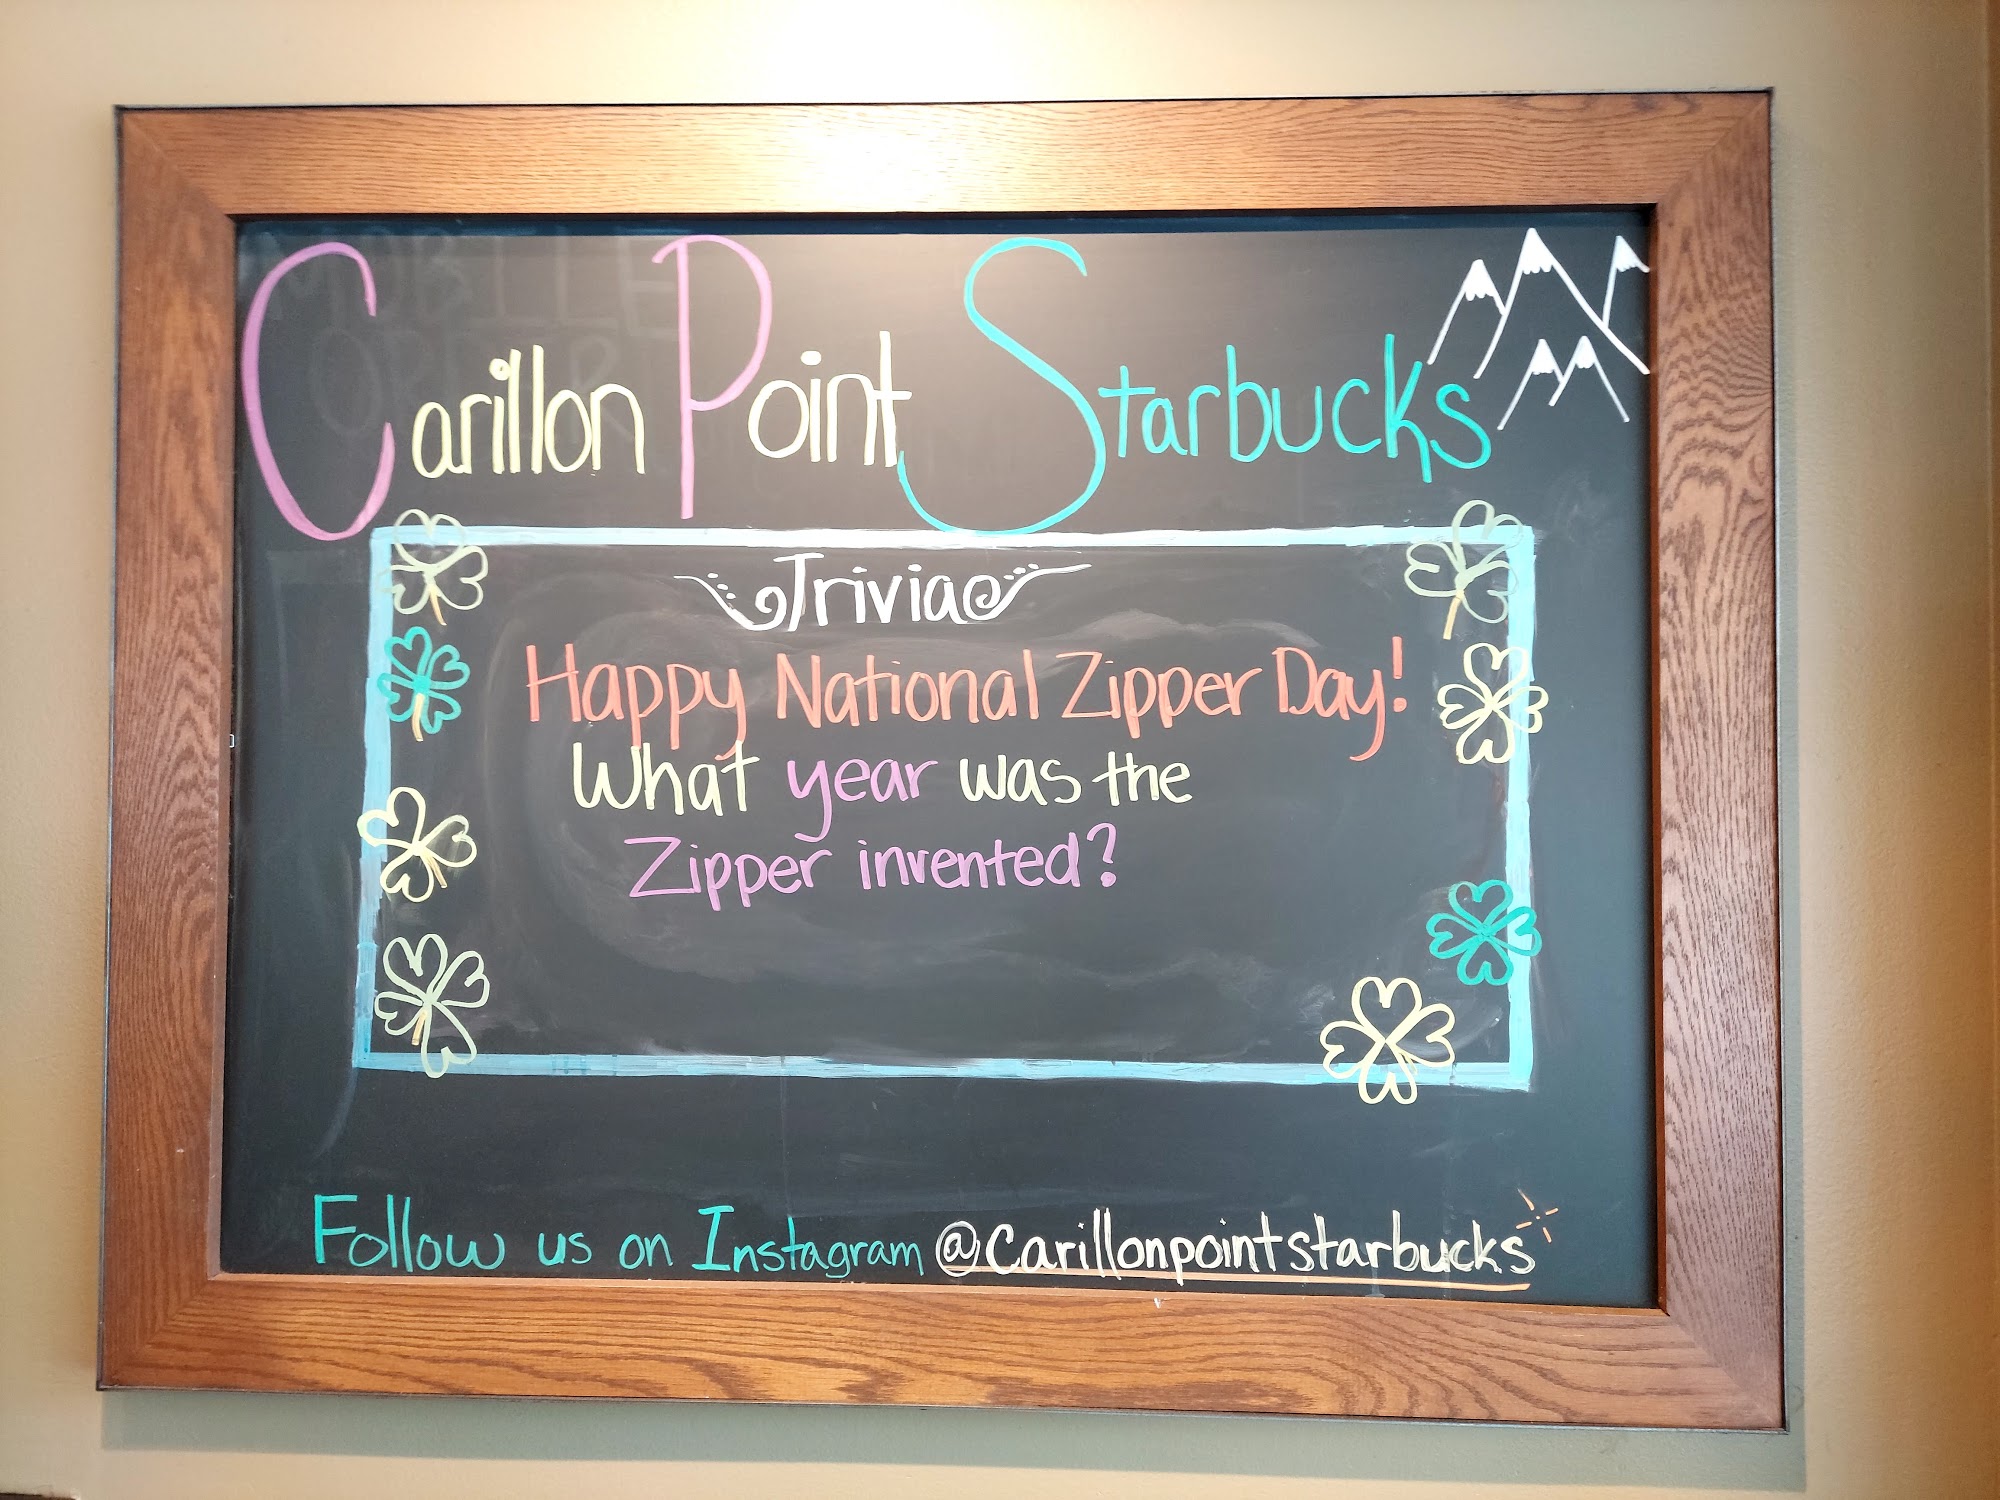 Carillon Point Starbucks
Trivia
Happy National Zipper Day!
What year was the
Zipper invented?
Follow us on Instagram @Carillonpointstarbucks
MOBILE
ORDER